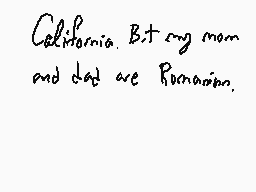 California. But my mom
and dad are Romanian.